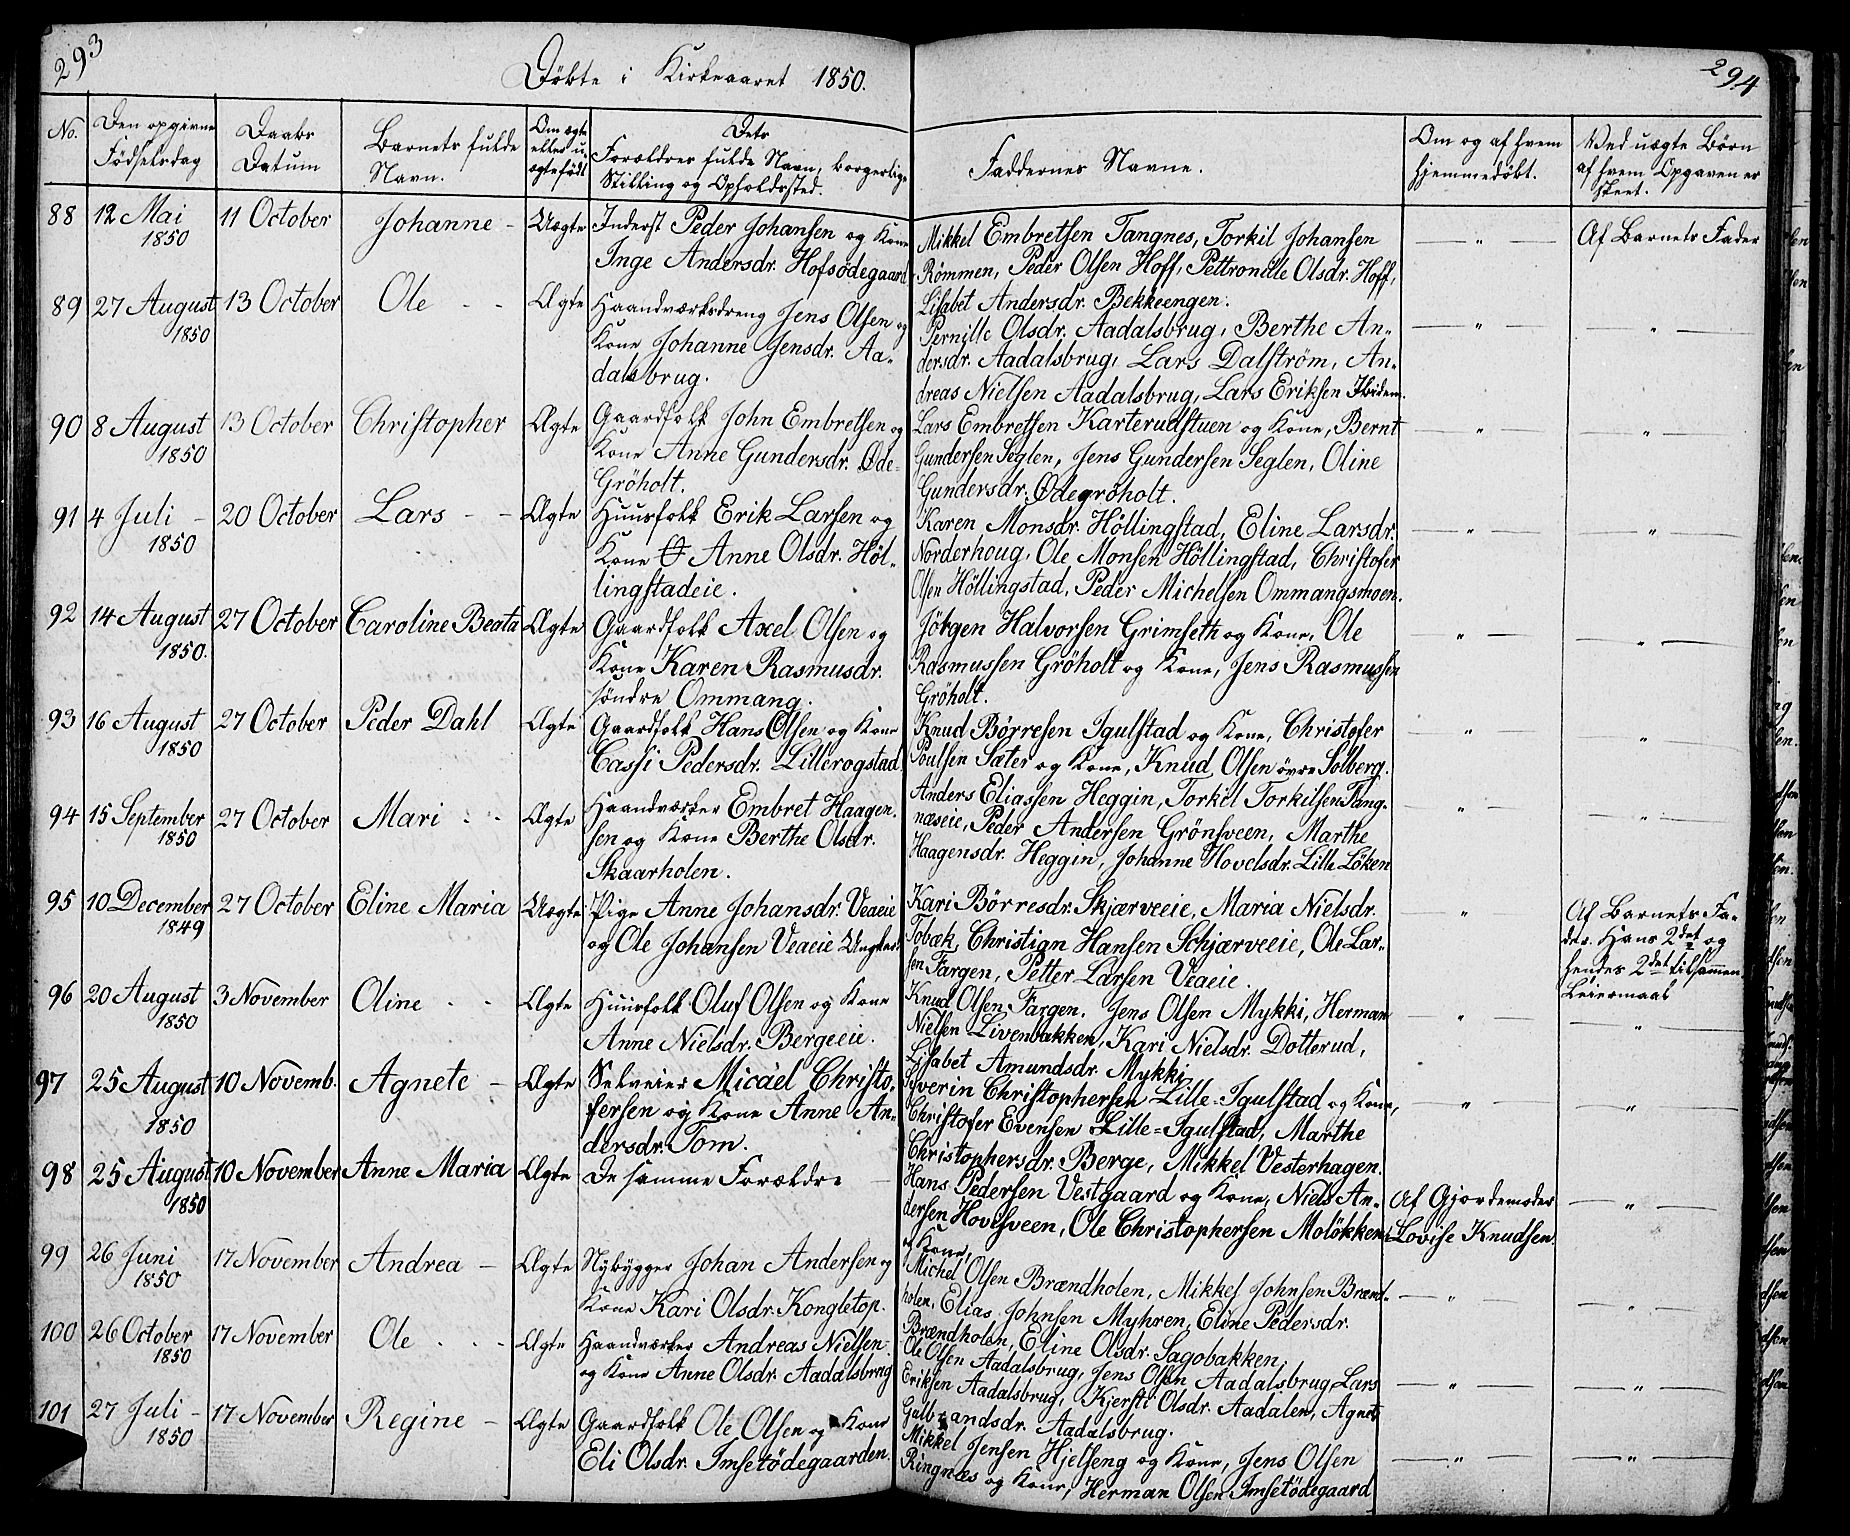 293
Døbte i Kirkeaaret 1850.
294
No.
Den opgivne
Fødselsdag
Daabs
Datum
Barnets fulde
Navn.
Om ægte
eller u-
ægtefødt
Dets
Forældres fulde Navn, borgerlige
Stilling og Opholdssted.
Faddernes Navne.
Om og af hvem
hjemmedøbt.
Ved uægte Børn
af hvem Opgaven er
skeet.
88 12 Mai 11 October Johanne - Uægte Inderst Peder Johansen og Kone
1850
Inge Andersdr. Hofsödegaard
Mikkel Embretsen Tangnes, Torkil Johansen
Römmen, Peder Olsen Hoff, Pettronille Olsdr. Hoff,
Lisabet Andersdr. Bekkeengen.
— " — Af Barnets Fader
89 27 August 13 October Ole - - Ægte Haandværksdreng Jens Olsen og
1850
Kone Johanne Jensdr. Aa-
dalsbrug.
Pernille Olsdr. Aadalsbrug, Berthe An-
dersdr. Aadalsbrug, Lars Dalström, An-
dreas Nielsen Aadalsbrug, Lars Eriksen Ibidem.
— " — " —
90 8 August 13 October Christopher Ægte Gaardfolk John Embretsen og
1850
Kone Anne Gundersdr. Øde-
Gröholt.
Lars Embretsen Karterudstuen og Kone, Bernt
Gundersen Seglen, Jens Gundersen Seglen, Oline
Gundersdr. Ødegröholt.
— " — " —
91 4 Juli - 20 October Lars - - Ægte Huusfolk Erik Larsen og
1850
Kone Anne Olsdr. Höl-
lingstadeie.
Karen Monsdr. Höllingstad, Eline Larsdr.
Norderhoug, Ole Monsen Höllingstad, Christofer
Olsen Höllingstad, Peder Michelsen Ommangsmoen.
— " — " —
92 14 August 27 October Caroline Beata Ægte Gaardfolk Axel Olsen og
1850.
Kone Karen Rasmusdr.
söndre Ommang.
Jörgen Halvorsen Grimseth og Kone, Ole
Rasmussen Gröholt og Kone, Jens Rasmussen
Gröholt.
" — " —
93 16 August 27 October Peder Dahl Ægte Gaardfolk Hans Olsen og Kone
1850
Cassi Pedersdr. Lillerogstad
Knud Børresen Igulstad og Kone, Christofer
Poulsen Sæter og Kone, Knud Olsen övre Solberg.
" — "
94 15 September 27 October Mari - - Ægte Haandværker Embret Haagen-
1850
sen og Kone Berthe Olsdr.
Skaarholen.
Anders Eliassen Heggin, Torkel Torkilsen Tang-
næseie, Peder Andersen Grönsveen, Marthe
Haagensdr. Heggin, Johanne Hovelsdr. Lille Löken
" — " —
95 10 December 27 October Eline Maria Uægte Pige Anne Johansdr. Veaeie
1849
og Ole Johansen Veaeie Ungkarl
Kari Börresdr. Skjærveeie, Maria Nielsdr.
Tobæk, Christian Hansen Schjærveeie, Ole Lar-
sen Fargen, Petter Larsen Veaeie.
" Af Barnets Fa-
der. Hans 2det og
hendes 2det tilsammen
Leiermaal
96 20 August 3 November Oline - - Ægte Huusfolk Oluf Olsen og Kone
1850
Anne Nielsdr. Bergeeie.
Knud Olsen Fargen. Jens Olsen Mykki, Herman
Nielsen Livenbakken, Kari Nielsdr. Dotterud,
Lisabet Amundsdr. Mykki.
" — " —
97 25 August 10 Novemb. Agnete - Ægte Selveier Micäel Christo-
1850
fersen og Kone Anne An-
dersdr. Tom.
Syverin Christophersen Lille-Igulstad og Kone,
Christofer Evensen Lille=Igulstad, Marthe
Christophersdr. Berge, Mikkel Vesterhagen.
— " — " —
98 25 August 10 November Anne Maria Ægte De samme Forældre —
1850
Hans Pedersen Vestgaard og Kone, Niels An-
dersen Hovisveen, Ole Christophersen Molökken
og Kone,
Af Gjordemoder
Lovise Knudsen
— " —
99 26 Juni 17 November Andrea - Ægte Nybygger Johan Andersen og
1850
Kone Kari Olsdr. Kongletop.
Michel Olsen Brændholen, Mikkel Johnsen Brænd-
holen, Elias Johnsen Myhren, Eline Pedersdr.
Brændholen, Eline Olsdr. Sagobakken,
— " — " —
100 26 October 17 November Ole - - - Ægte Haandværker Andreas Nielsen
1850
og Kone Anne Olsdr. Aadalsbrug
Ole Olsen Aadalsbrug, Jens Olsen Aadalsbrug, Lars
Eriksen Aadalsbrug, Kjersti Olsdr. Aadalen, Agnete
Gulbrandsdr. Aadalsbrug.
— " — " —
101 27 Juli - 17 November Regine - Ægte Gaardfolk Ole Olsen og Kone
1850
Eli Olsdr. Imsetödegaarden.
Mikkel Jensen Hjelseng og Kone, Jens Olsen
Ringnæs og Kone, Herman Olsen Imsetödegaard
— " — " —